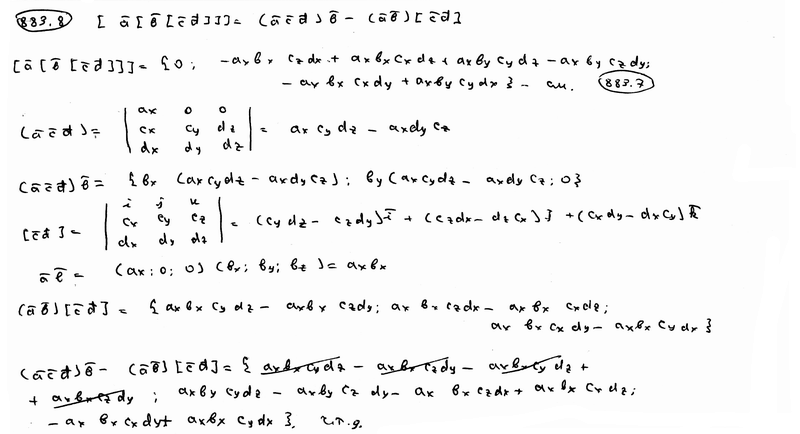 883.8 [ā[b̄[c̄d̄]]] = (āc̄d̄)b̄ - (āb̄)[c̄d̄]
[ā[b̄[c̄d̄]]] = {0; -axbx czdx + axbxcxdz + axby cydz - axby czdy;
- axbxcxdy + axby cydx} - см. 883.7
(āc̄d̄) = | ax 0 0 | = ax cydz - axdy cz
| cx cy dz |
| dx dy dz |
(āc̄d̄)b̄ = {bx (axcydz - axdycz); by(axcydz - axdy cz; 0}
[c̄d̄] = | i j k | = (cydz - czdy)ī + (czdx - dzcx)j + (cxdy - dxcy)k̄
| cx cy cz |
| dx dy dz |
āb̄ = (ax; 0; 0) (bx; by; bz) = axbx
(āb̄)[c̄d̄] = {axbxcydz - axbx czdy; ax bx czdx - ax bx cxdz;
ax bx cx dy - axbxcydx}
(āc̄d̄)b̄ - (āb̄)[c̄d̄] = {axbxcydz - axbxczdy - axbxcydz +
+ axbxczdy ; axby cydz - axby cz dy - ax bx czdx + axbx cxdz;
- ax bx cxdy + axbx cydx}, ч.т.д.